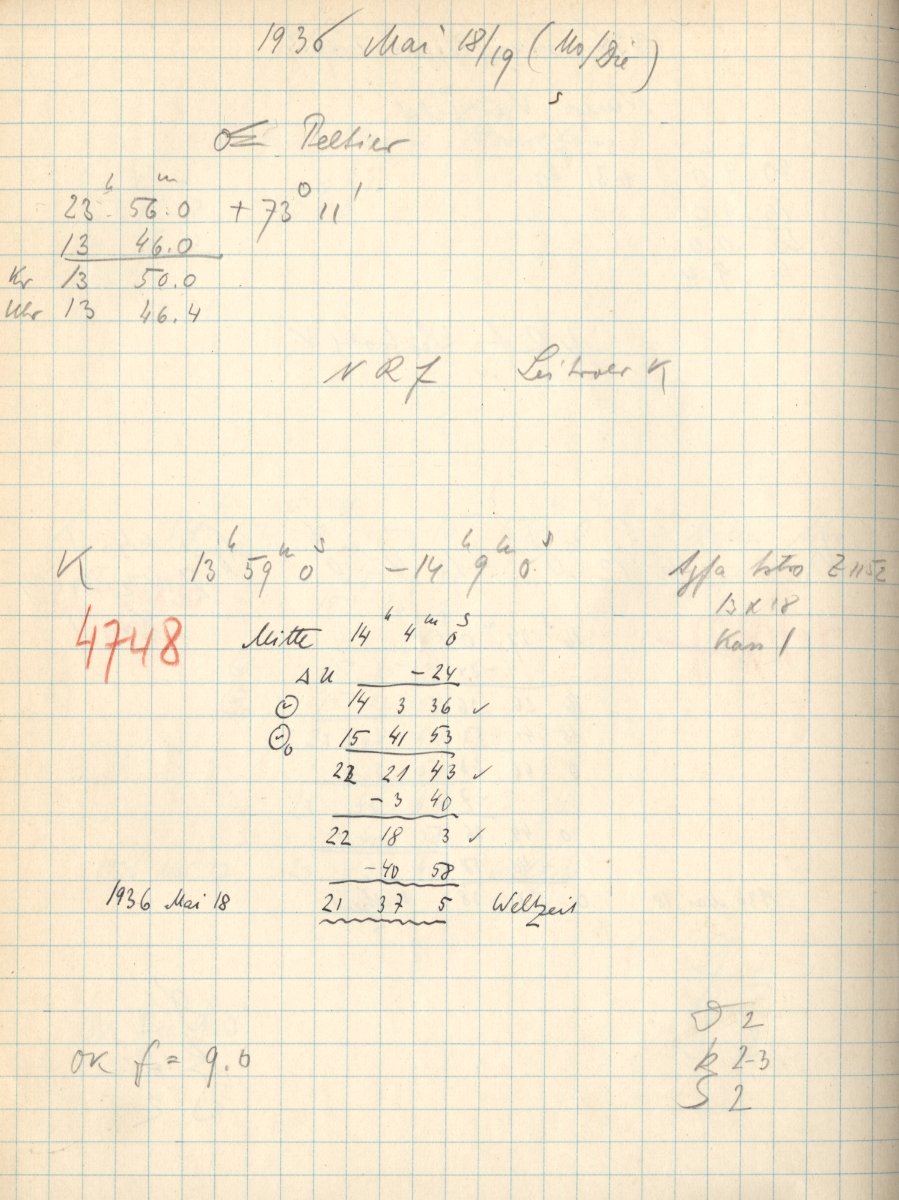 1936 Mai 18/19 (Mo/Die)
s
☄ Peltier
23ʰ 56.0ᵐ +73° 11'
13 46.0
Kr 13 50.0
Uhr 13 46.4
N R f
K 13ʰ 59ᵐ 0ˢ –14ʰ 9ᵐ 0ˢ Agfa Astro Z 1152
13 x 18
Kass 1
4748 Mitte 14ʰ 4ᵐ 0ˢ
Δ U –24
14 3 36 ✓
15 41 53
22 21 43 ✓
–3 40
22 18 3 ✓
–40 58
1936 Mai 18 21 37 5 Weltzeit
2
OK f = 9.0 k 2-3
S 2